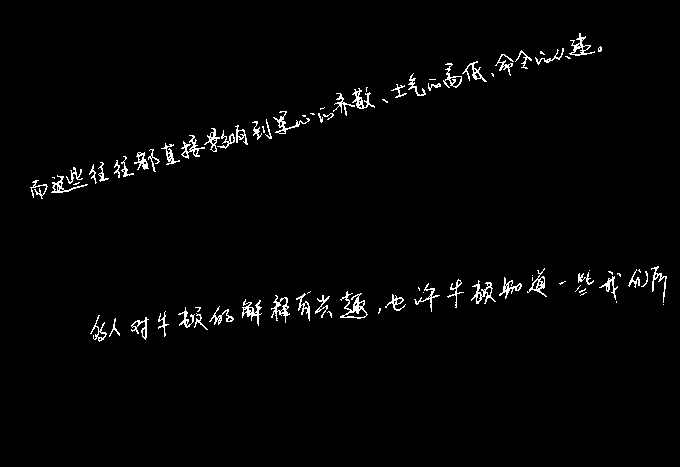 而这些往往都直接影响到军心的齐散、士气的高低、命令的从违。
的人对牛顿的解释有兴趣，也许牛顿知道一些我们所